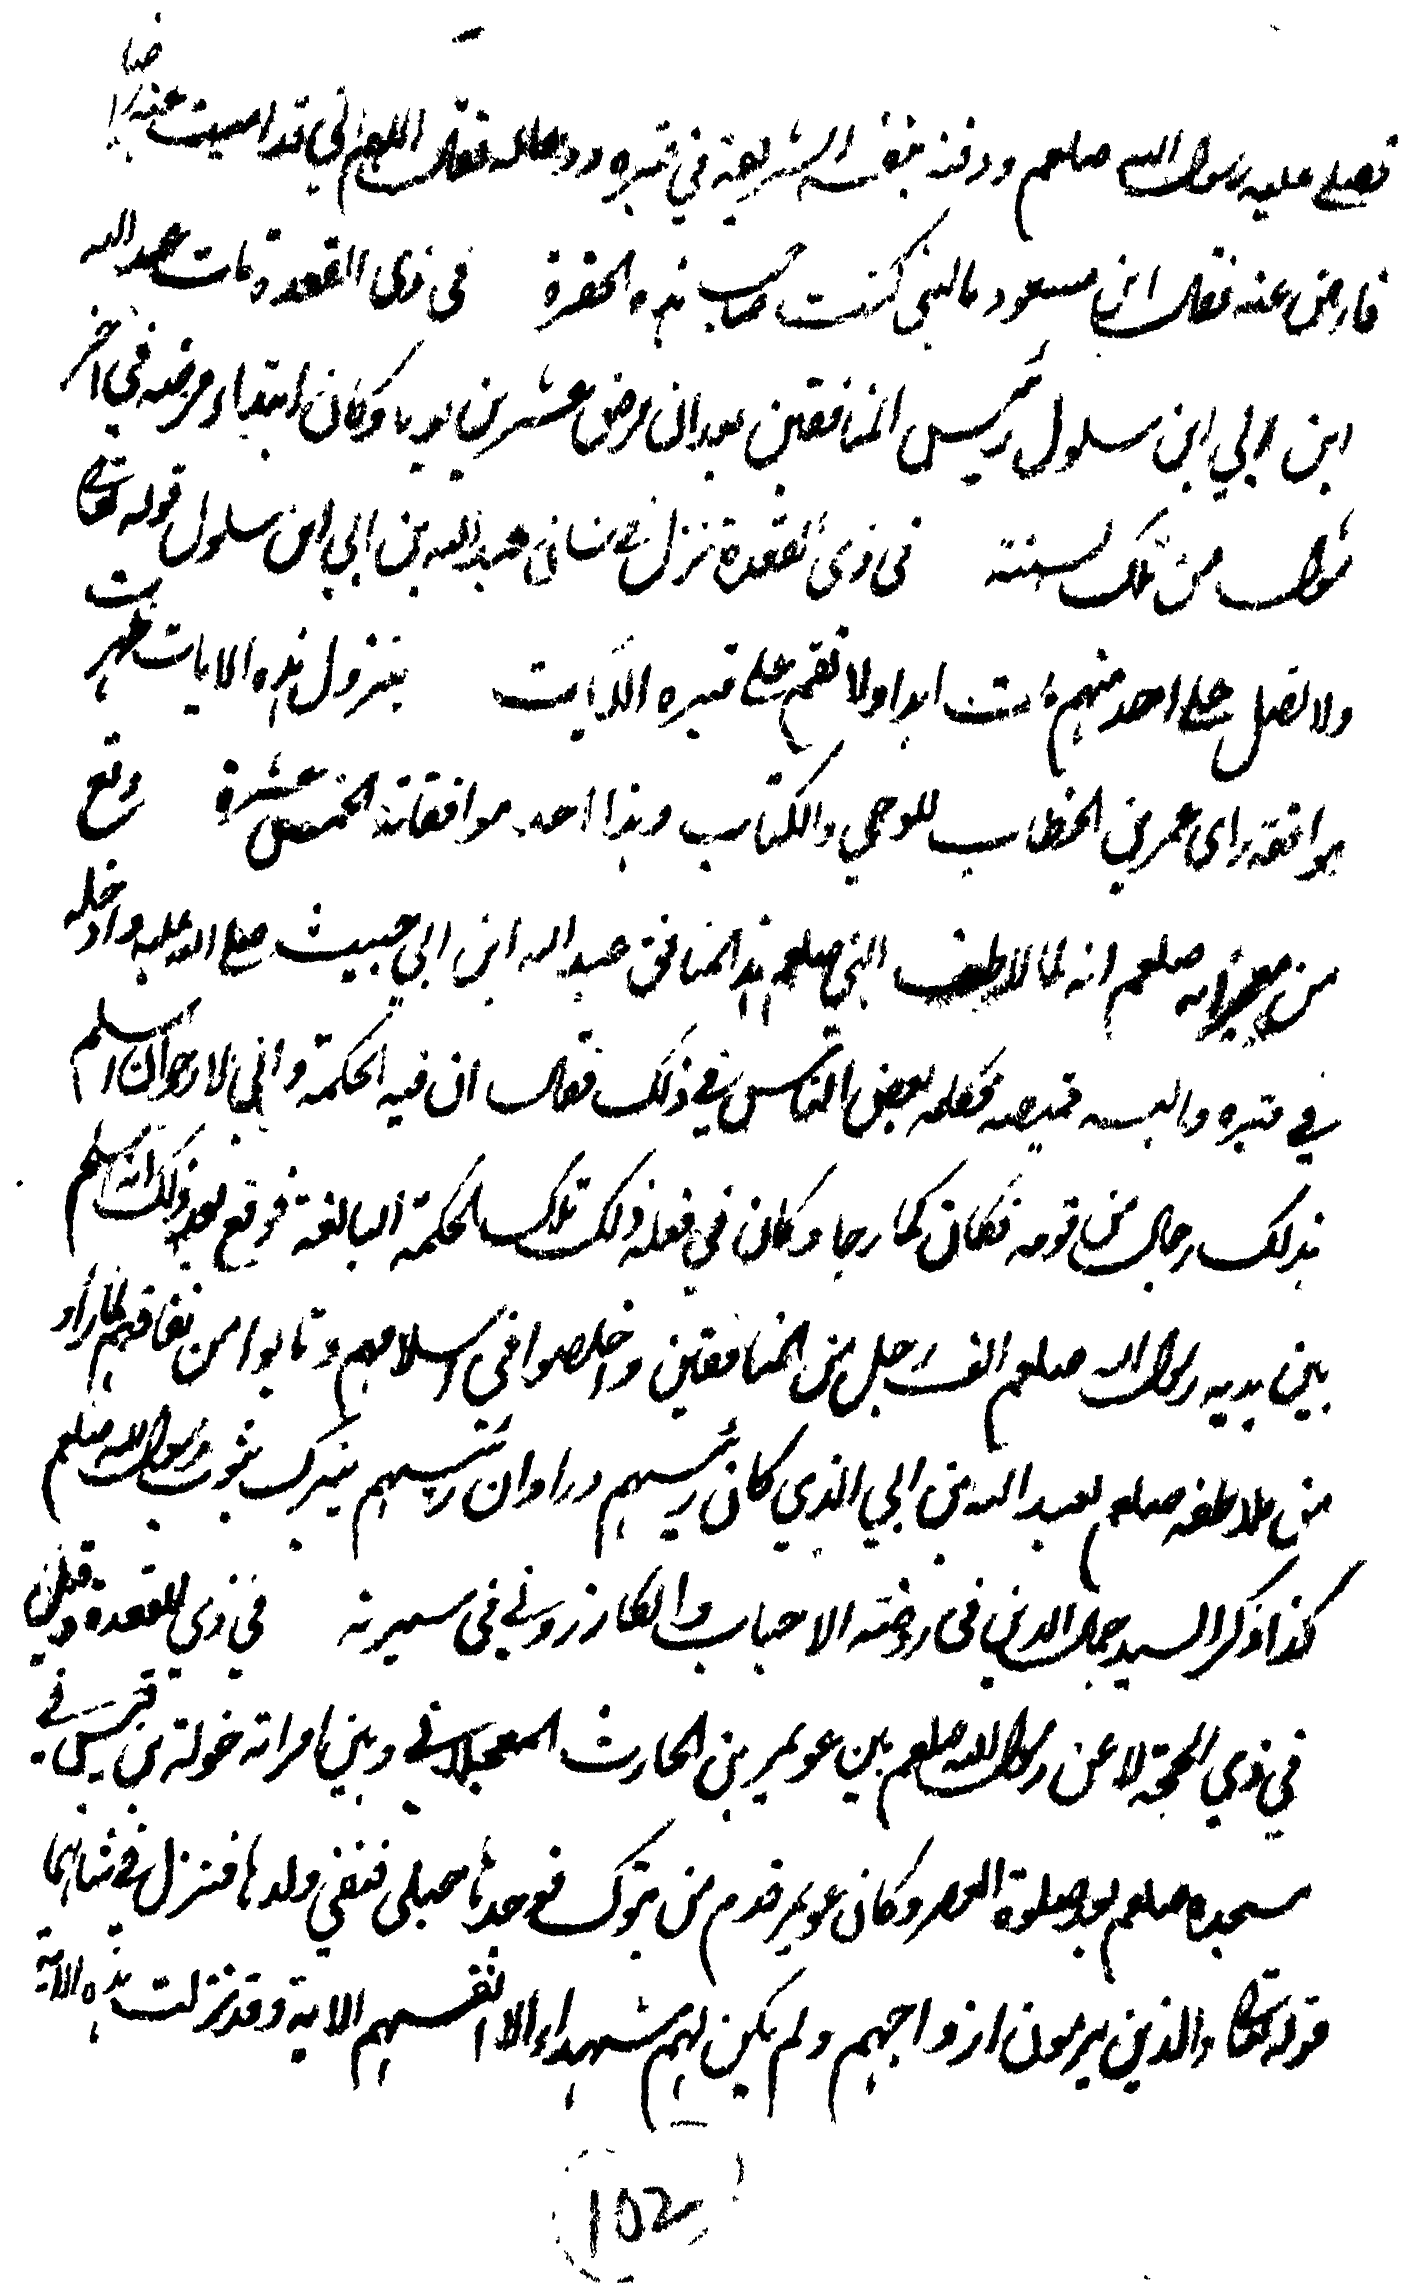 فصلى عليه رسول الله صلعم ودفنه بنفسه الشريفة في قبره ودعا له فقال اللهم اني قد امسيت عنه راضيا
فارض عنه فقال ابن مسعود ياليتني كنت صاحب هذه الحفرة في ذي القعدة مات عبد الله
ابن ابي ابن سلول رئيس المنافقين بعد ان مرض عشرين يوما وكان ابتداء مرضه في اخر
شوال من تلك السنة في ذي القعدة نزل في شان عبد الله بن ابي ابن سلول قوله تعالى
ولا تصل على احد منهم مات ابدا ولا تقم على قبره الآيات بنزول هذه الايات ظهرت
موافقة راى عمر بن الخطاب للوحي والكتاب وهذا احد موافقاته الخمس عشرة وقع
من معجزاته صلعم انه لما لاطف النبي صلعم هذا المنافق عبد الله ابن ابي حيث صلى الله عليه وادخله
في قبره والبسه قميصه فكلمه بعض الناس في ذلك فقال ان فيه الحكمة واني لارجو ان اسلم
بذلك رجال من قومه فكان كما رجا وكان في فعله ذلك تلك الحكمة البالغة فوقع بعد ذلك انه اسلم
بين يديه رسول الله صلعم الف رجل من المنافقين واخلصوا في اسلامهم وتابوا من نفاقهم لما راوا
من ملاطفه صلعم لعبد الله بن ابي الذي كان رئيسهم وراوا ان رئيسهم يتبرك بثوب رسول الله صلعم
كذا ذكر السيد جمال الدين في روضة الاحباب والكازروني في سيرته في ذي القعدة وقيل
في ذي الحجة لاعن رسول الله صلعم بين عويمر بن الحارث العجلاني وبين امراته خولة بن قيس في
مسجده صلعم بعد صلوة العصر وكان عويمر قدم من تبوك فوجدها حبلى فنفي ولدها فنزل في شانهما
قوله تعالى والذين يرمون ازواجهم ولم يكن لهم شهداء الا انفسهم الاية وقد نزلت هذه الاية
102